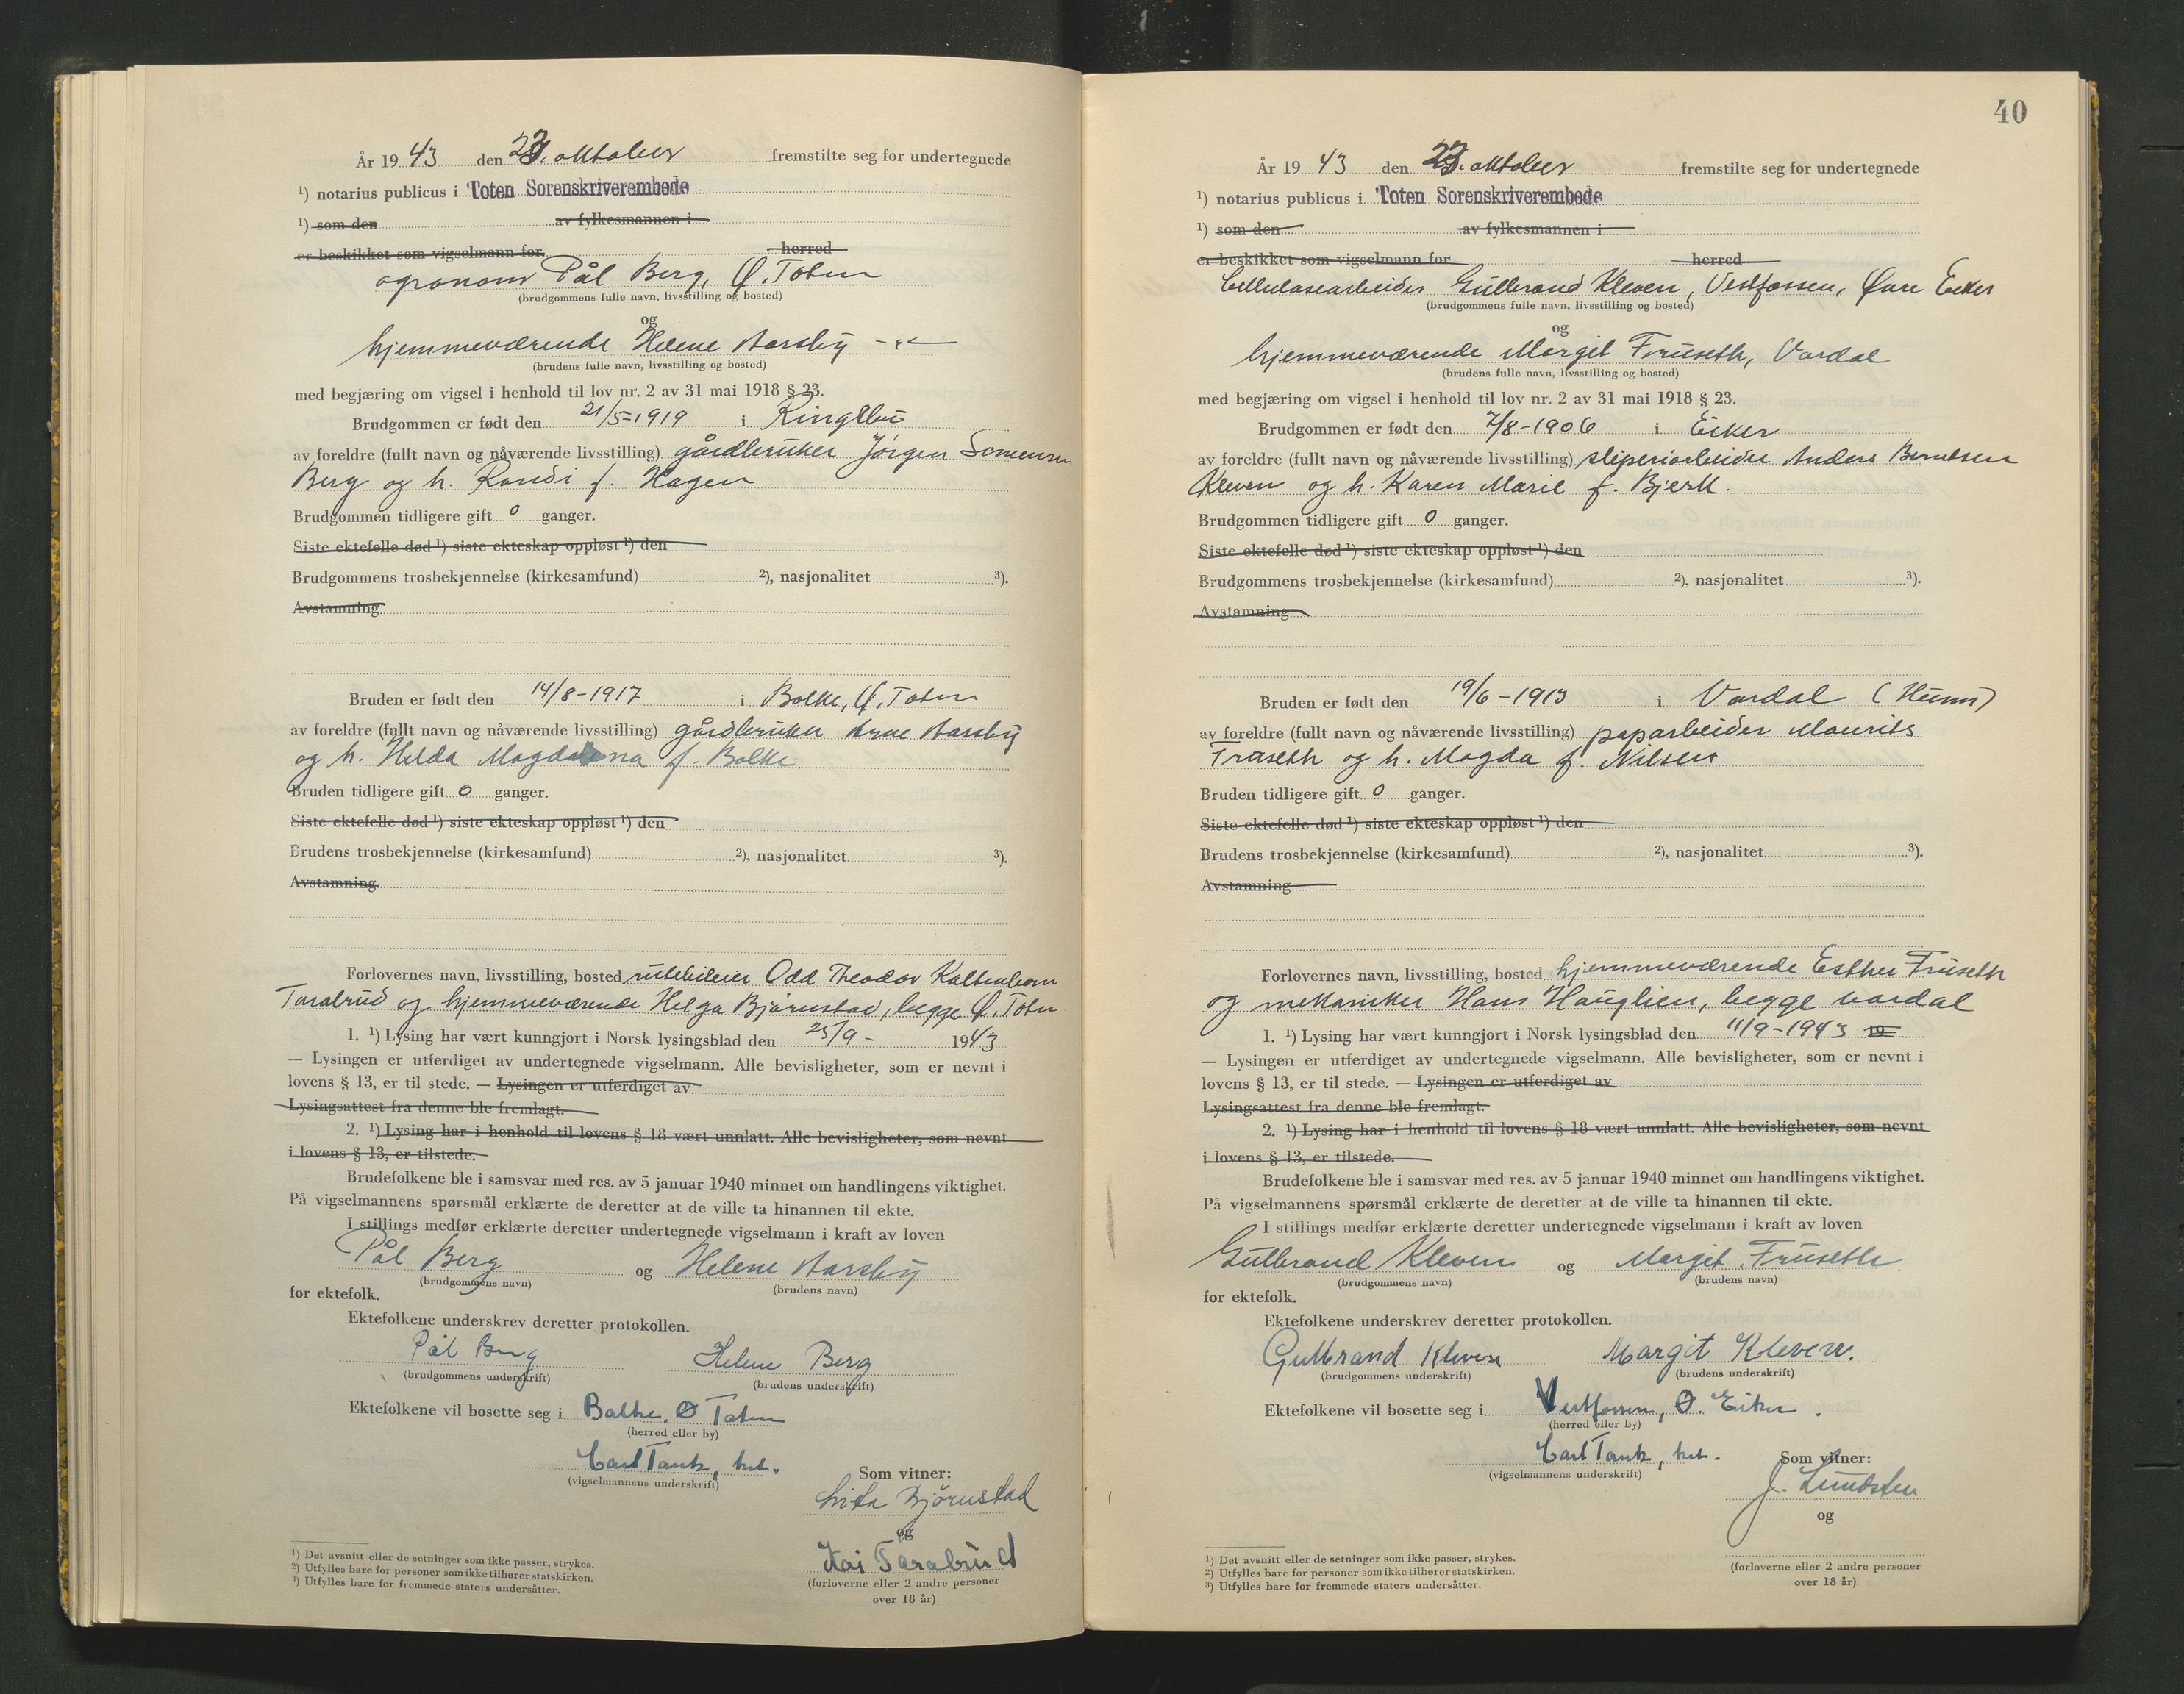 År 1943 den 23. oktober fremstilte seg for undertegnede
¹) notarius publicus i Toten Sorenskriverembede
¹) som den av fylkesmannen i
er beskikket som vigselmann for herred
agronom Pål Berg, Ø. Toten
(brudgommens fulle navn, livsstilling og bosted)
og
hjemmeværende Helene Aarsby - " -
(brudens fulle navn, livsstilling og bosted)
med begjæring om vigsel i henhold til lov nr. 2 av 31 mai 1918 § 23.
Brudgommen er født den 21/5-1919 i Ringebu
av foreldre (fullt navn og nåværende livsstilling) gårdbruker Jørgen
Berg og h. Randi f. Hagen
Brudgommen tidligere gift 0 ganger.
Siste ektefelle død ¹) siste ekteskap oppløst ¹) den
Brudgommens trosbekjennelse (kirkesamfund) ²), nasjonalitet ³).
Avstamning
Bruden er født den 14/8-1917 i Balke, Ø. Toten
av foreldre (fullt navn og nåværende livsstilling) gårdbruker Arne Aarsby
og h. Helda Magdalena f. Balke
Bruden tidligere gift 0 ganger.
Siste ektefelle død ¹) siste ekteskap oppløst ¹) den
Brudens trosbekjennelse (kirkesamfund) ²), nasjonalitet ³).
Avstamning
Forlovernes navn, livsstilling, bosted Odd Theodor Kaltenborn
Tarabrud og hjemmeværende Helga Bjørnstad, begge Ø. Toten
1. ¹) Lysing har vært kunngjort i Norsk lysingsblad den 25/9 - 1943
— Lysingen er utferdiget av undertegnede vigselmann. Alle bevisligheter, som er nevnt i
lovens § 13, er til stede. — Lysingen er utferdiget av
Lysingsattest fra denne ble fremlagt.
2. ¹) Lysing har i henhold til lovens § 18 vært unnlatt. Alle bevisligheter, som nevnt
i lovens § 13, er tilstede.
Brudefolkene ble i samsvar med res. av 5 januar 1940 minnet om handlingens viktighet.
På vigselmannens spørsmål erklærte de deretter at de ville ta hinannen til ekte.
I stillings medfør erklærte deretter undertegnede vigselmann i kraft av loven
Pål Berg og Helene Aarsby
(brudgommens navn) (brudens navn)
for ektefolk.
Ektefolkene underskrev deretter protokollen.
Pål Berg Helene Berg
(brudgommens underskrift) (brudens underskrift)
Ektefolkene vil bosette seg i Balke, Ø Toten
(herred eller by)
Carl Tank,
(vigselmannens underskrift)
Som vitner:
Bjørnstad
og
Kai Tarabrud
(forloverne eller 2 andre personer
over 18 år)
¹) Det avsnitt eller de setninger som ikke passer, strykes.
²) Utfylles bare for personer som ikke tilhører statskirken.
³) Utfylles bare for fremmede staters undersåtter.
40
År 1943 den 23. oktober fremstilte seg for undertegnede
¹) notarius publicus i Toten Sorenskriverembede
¹) som den av fylkesmannen i
er beskikket som vigselmann for herred
Cellulosearbeider Gulbrand Kleven, Vestfossen, Øvre Eiker
(brudgommens fulle navn, livsstilling og bosted)
og
hjemmeværende Margit Fruseth, Vardal
(brudens fulle navn, livsstilling og bosted)
med begjæring om vigsel i henhold til lov nr. 2 av 31 mai 1918 § 23.
Brudgommen er født den 7/8-1906 i Eiker
av foreldre (fullt navn og nåværende livsstilling) sliperiarbeider Anders Berntsen
Kleven og h. Karen Marie f. Bjerk.
Brudgommen tidligere gift 0 ganger.
Siste ektefelle død ¹) siste ekteskap oppløst ¹) den
Brudgommens trosbekjennelse (kirkesamfund) ²), nasjonalitet ³).
Avstamning
Bruden er født den 19/6-1913 i Vardal (Hunn)
av foreldre (fullt navn og nåværende livsstilling) paparbeider Maurits
Fruseth og h. Magda f. Nilsen
Bruden tidligere gift 0 ganger.
Siste ektefelle død ¹) siste ekteskap oppløst ¹) den
Brudens trosbekjennelse (kirkesamfund) ²), nasjonalitet ³).
Avstamning
Forlovernes navn, livsstilling, bosted hjemmeværende Esther Fruseth
og mekaniker Hans Hauglien, begge Vardal
1. ¹) Lysing har vært kunngjort i Norsk lysingsblad den 11/9-1943 19
— Lysingen er utferdiget av undertegnede vigselmann. Alle bevisligheter, som er nevnt i
lovens § 13, er til stede. — Lysingen er utferdiget av
Lysingsattest fra denne ble fremlagt.
2. ¹) Lysing har i henhold til lovens § 18 vært unnlatt. Alle bevisligheter, som nevnt
i lovens § 13, er tilstede.
Brudefolkene ble i samsvar med res. av 5 januar 1940 minnet om handlingens viktighet.
På vigselmannens spørsmål erklærte de deretter at de ville ta hinannen til ekte.
I stillings medfør erklærte deretter undertegnede vigselmann i kraft av loven
Gulbrand Kleven og Margit Fruseth
(brudgommens navn) (brudens navn)
for ektefolk.
Ektefolkene underskrev deretter protokollen.
Gulbrand Kleven Margit Kleven.
(brudgommens underskrift) (brudens underskrift)
Ektefolkene vil bosette seg i Vestfossen, Ø. Eiker.
(herred eller by)
Carl Tank,
(vigselmannens underskrift)
Som vitner:
J. Lundsten
og
(forloverne eller 2 andre personer
over 18 år)
¹) Det avsnitt eller de setninger som ikke passer, strykes.
²) Utfylles bare for personer som ikke tilhører statskirken.
³) Utfylles bare for fremmede staters undersåtter.